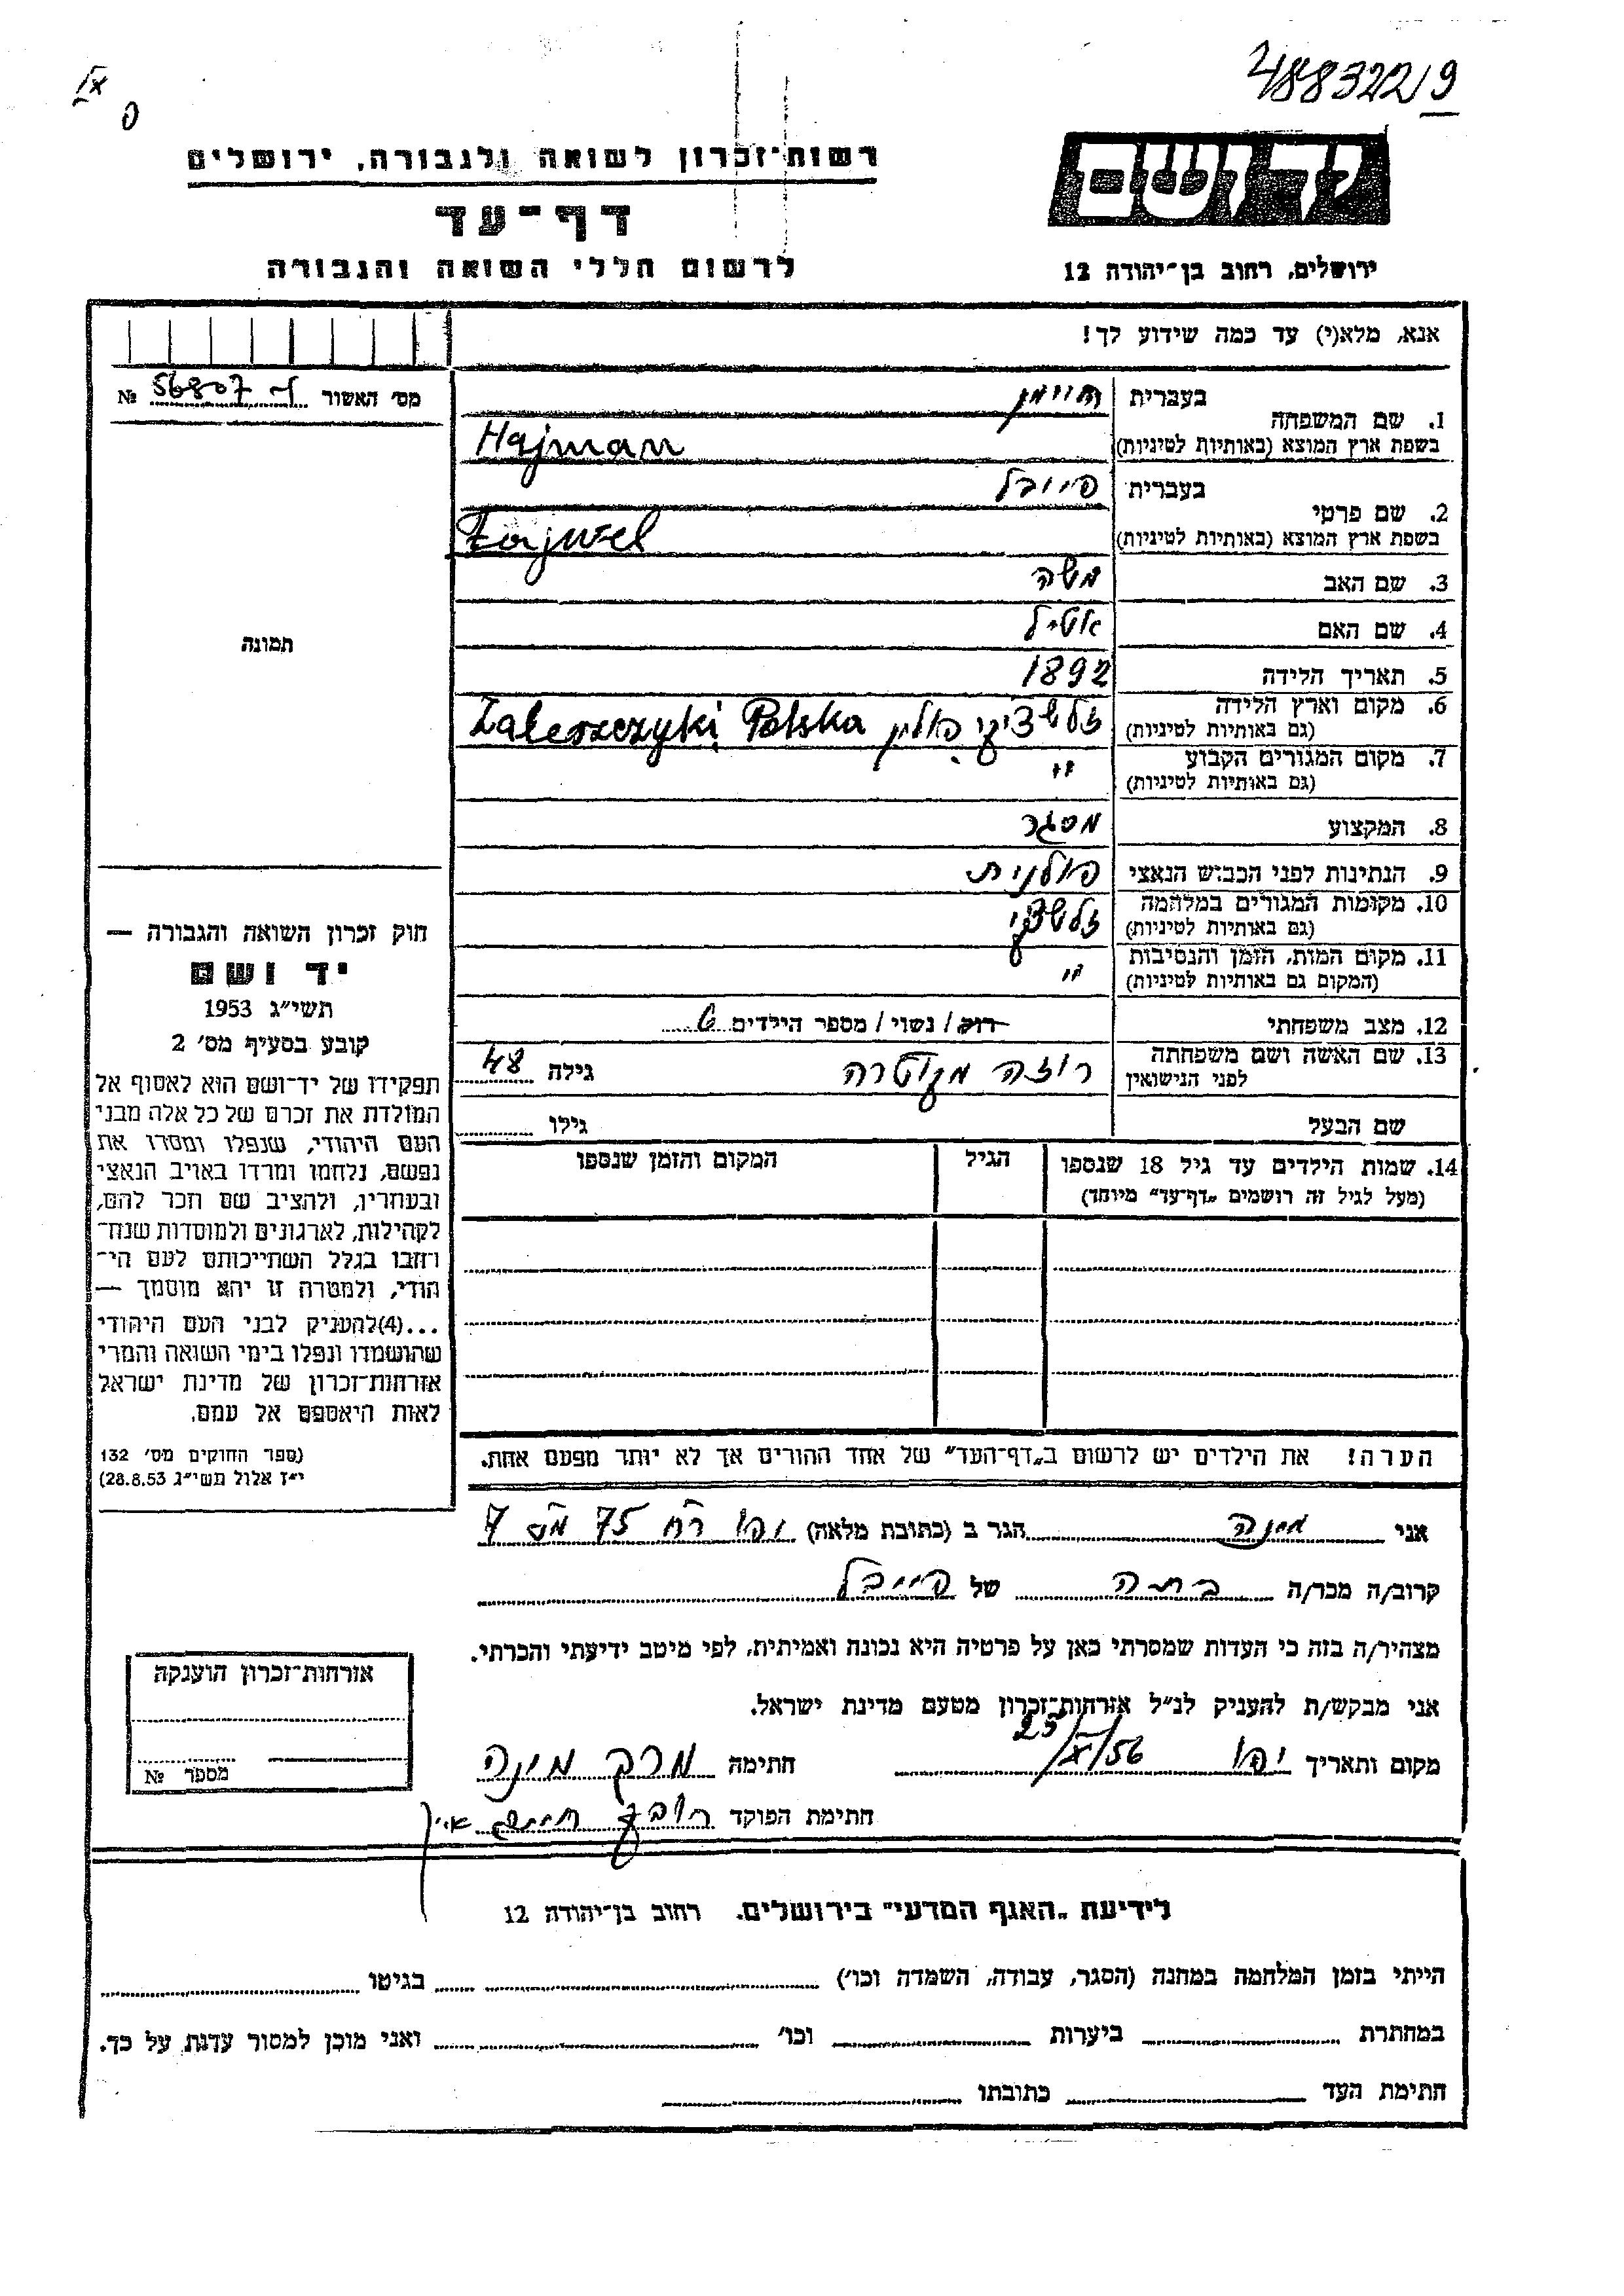 488322/9
IX
רשות־זכרון לשואה ולגבורה, ירושלים
יד ושם
דף־עד
לרשום חללי השואה והגבורה
ירושלים, רחוב בן־יהודה 12
אנא, מלא(י) עד כמה שידוע לך!
מס׳ האשור 56807 №
1. שם המשפחה בעברית היימן
בשפת ארץ המוצא (באותיות לטיניות) Hajman
2. שם פרטי בעברית פייוול
בשפת ארץ המוצא (באותיות לטיניות) Fajwel
3. שם האב משה
4. שם האם
5. תאריך הלידה 1892
6. מקום וארץ הלידה פולין Zaleszczyki Polska
(גם באותיות לטיניות)
7. מקום המגורים הקבוע "
(גם באותיות לטיניות)
8. המקצוע מסגר
9. הנתינות לפני הכבוש הנאצי פולנית
10. מקומות המגורים במלחמה
(גם באותיות לטיניות)
11. מקום המות, הזמן והנסיבות "
(המקום גם באותיות לטיניות)
12. מצב משפחתי רוק / נשוי / מספר הילדים 6
13. שם האשה ושם משפחתה רוזה גילה 48
לפני הנישואין
שם הבעל גילו
14. שמות הילדים עד גיל 18 שנספו הגיל המקום והזמן שנספו
(מעל לגיל זה רושמים „דף־עד״ מיוחד)
הערה! את הילדים יש לרשום ב„דף־העד״ של אחד ההורים אך לא יותר מפעם אחת.
תמונה
חוק זכרון השואה והגבורה —
יד ושם
תשי״ג 1953
קובע בסעיף מס׳ 2
תפקידו של יד־ושם הוא לאסוף אל
המולדת את זכרם של כל אלה מבני
העם היהודי, שנפלו ומסרו את
נפשם, נלחמו ומרדו באויב הנאצי
ובעוזריו, ולהציב שם וזכר להם,
לקהילות, לארגונים ולמוסדות שנח־
רבו בגלל השתייכותם לעם הי־
הודי, ולמטרה זו יהא מוסמך —
...(4) להעניק לבני העם היהודי
שהושמדו ונפלו בימי השואה והמרי
אזרחות־זכרון של מדינת ישראל
לאות היאספם אל עמם.
(ספר החוקים מס׳ 132
י״ז אלול תשי״ג 28.8.53)
אני מינה הגר ב (כתובת מלאה) יפו רח׳ 75 מס׳ 7
קרוב/ה מכר/ה בתה של פייבל
מצהיר/ה בזה כי העדות שמסרתי כאן על פרטיה היא נכונה ואמיתית, לפי מיטב ידיעתי והכרתי.
אני מבקש/ת להעניק לנ״ל אזרחות־זכרון מטעם מדינת ישראל.
מקום ותאריך יפו 25/X/56 חתימה מרק מינה
חתימת הפוקד
אזרחות־זכרון הוענקה
מספר №
לידיעת „האגף המדעי״ בירושלים, רחוב בן־יהודה 12
הייתי בזמן המלחמה במחנה (הסגר, עבודה, השמדה וכו׳) בגיטו
במחתרת ביערות וכו׳ ואני מוכן למסור עדות על כך.
חתימת העד כתובתו